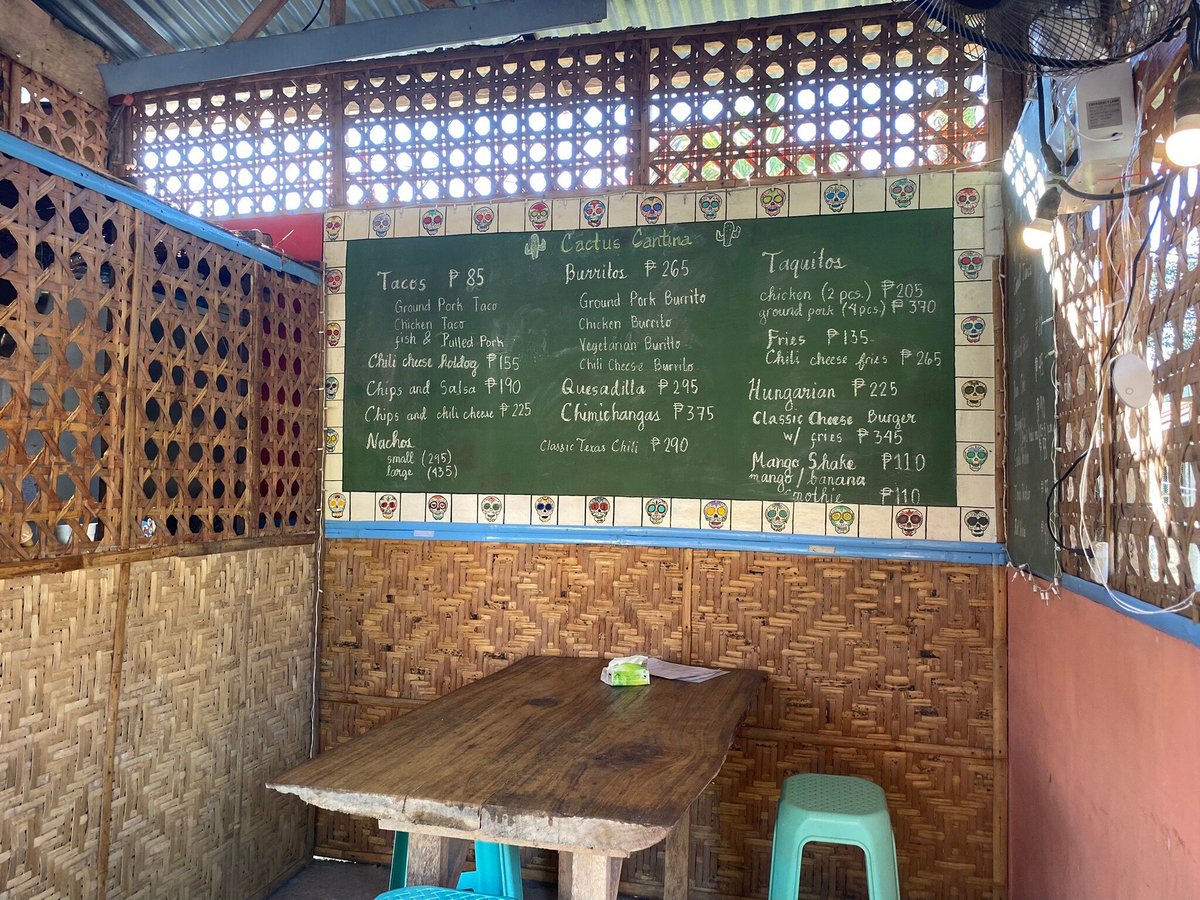 Cactus Cantina
Tacos ₱ 85
Ground Pork Taco
Chicken Taco
fish & Pulled Pork
Chili cheese hotdog ₱155
Chips and Salsa ₱190
Chips and chili cheese ₱225
Nachos
small (295)
large (435)
Burritos ₱ 265
Ground Pork Burrito
Chicken Burrito
Vegetarian Burito
Chili Cheese Burrito
Quesadilla ₱295
Chimichangas ₱375
Classic Texas Chili ₱290
Taquitos
chicken (2 pcs.) ₱205
ground pork (4pcs) ₱ 370
Fries ₱135
Chili cheese fries ₱265
Hungarian ₱225
Classic Cheese Burger
w/ fries ₱345
Mango Shake ₱110
mango/banana
smoothie ₱110